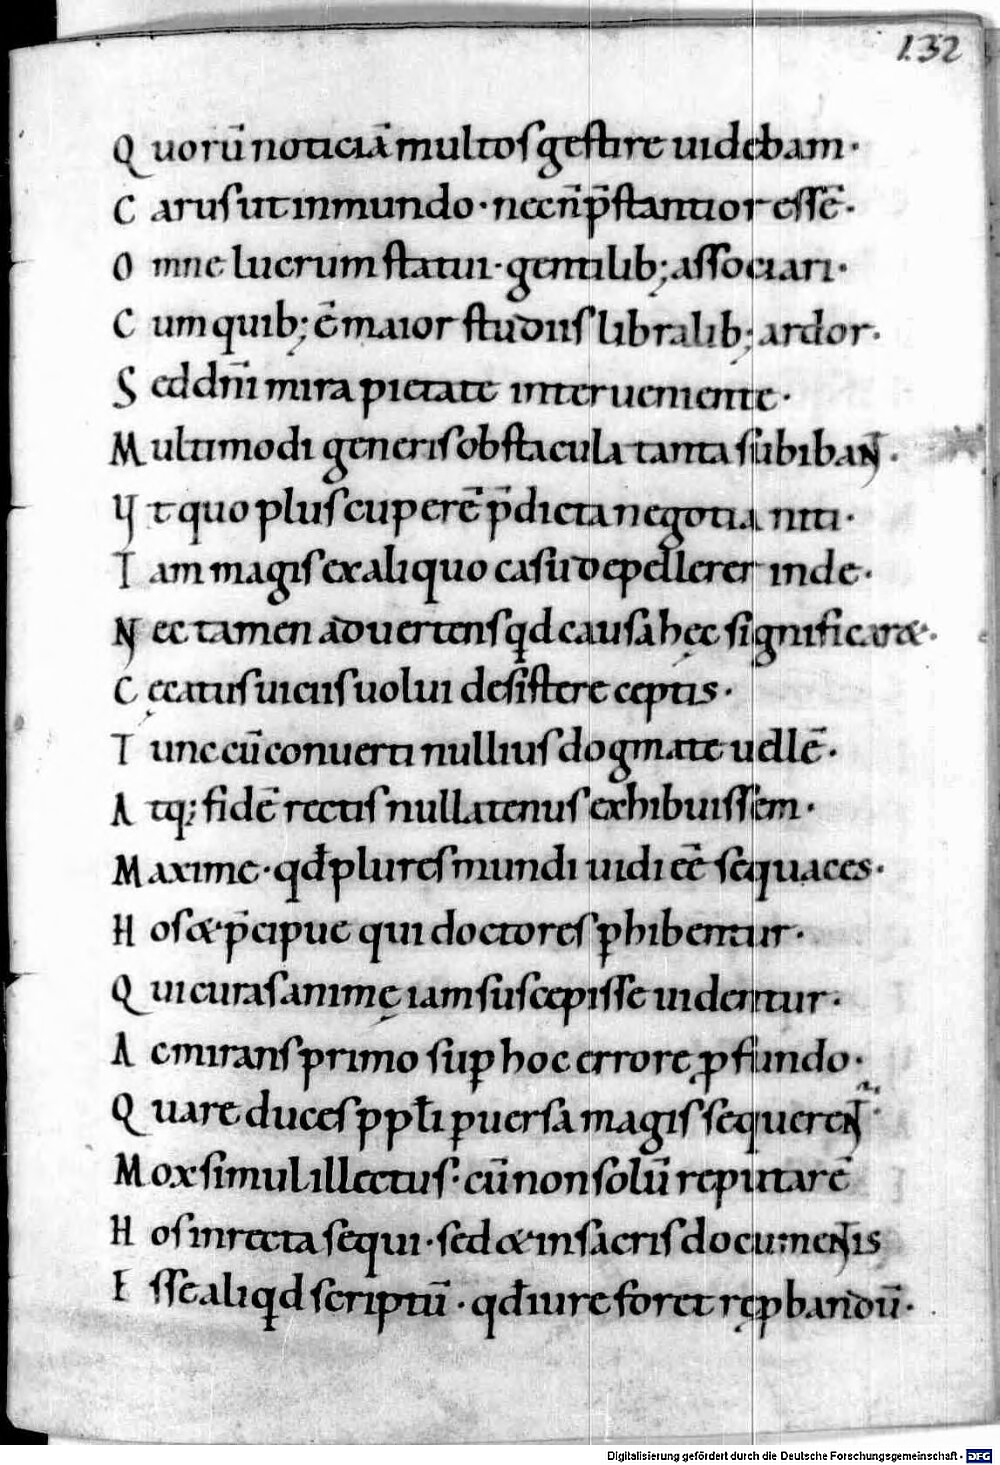 132
Quorū noticiā multos gestire uidebam·
Carus ut in mundo· necn̄ p̄stantior essē·
Omne lucrum statui· gentilib; associari·
Cum quib; ē maior studiis libralib; ardor·
Sed dn̄i mira pietate interueniente·
Multimodi generis obstacula tanta subibant·
Vt quo plus cuperē p̄dicta negotia niti·
Iam magis ex aliquo casu depellerer inde·
Nec tamen aduertens qd causa hęc significaret·
Cęcatus uicus uolui desistere ceptis·
Tunc cū conuerti nullius dogmate uellē·
Atq; fidē rectis nullatenus exhibuissem·
Maxime· qđ plures mundi uidi eē sequaces·
Hos et p̄cipue qui doctores ꝑhibentur·
Qui curas animę iam suscepisse uidentur·
Ac mirans primo suꝑ hoc errore ꝓfundo·
Quare duces ppłi ꝑuersa magis sequerent·
Mox simul illectus· cū non solū reputarē
Hos inrecta sequi· sed et in sacris documentis
Esse aliqd scriptū· qđ iure foret ręꝓbandū·
Digitalisierung gefördert durch die Deutsche Forschungsgemeinschaft - DFG